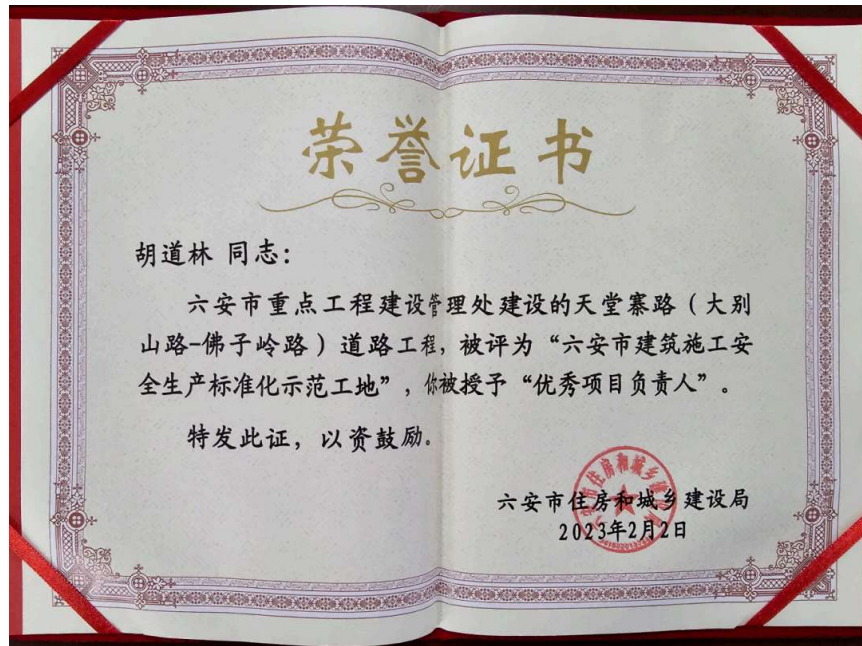 荣誉证书
胡道林 同志：
六安市重点工程建设管理处建设的天堂寨路（大别
山路-佛子岭路）道路工程，被评为“六安市建筑施工安
全生产标准化示范工地”，你被授予“优秀项目负责人”。
特发此证，以资鼓励。
六安市住房和城乡建设局
2023年2月2日
六安市住房和城乡建设局